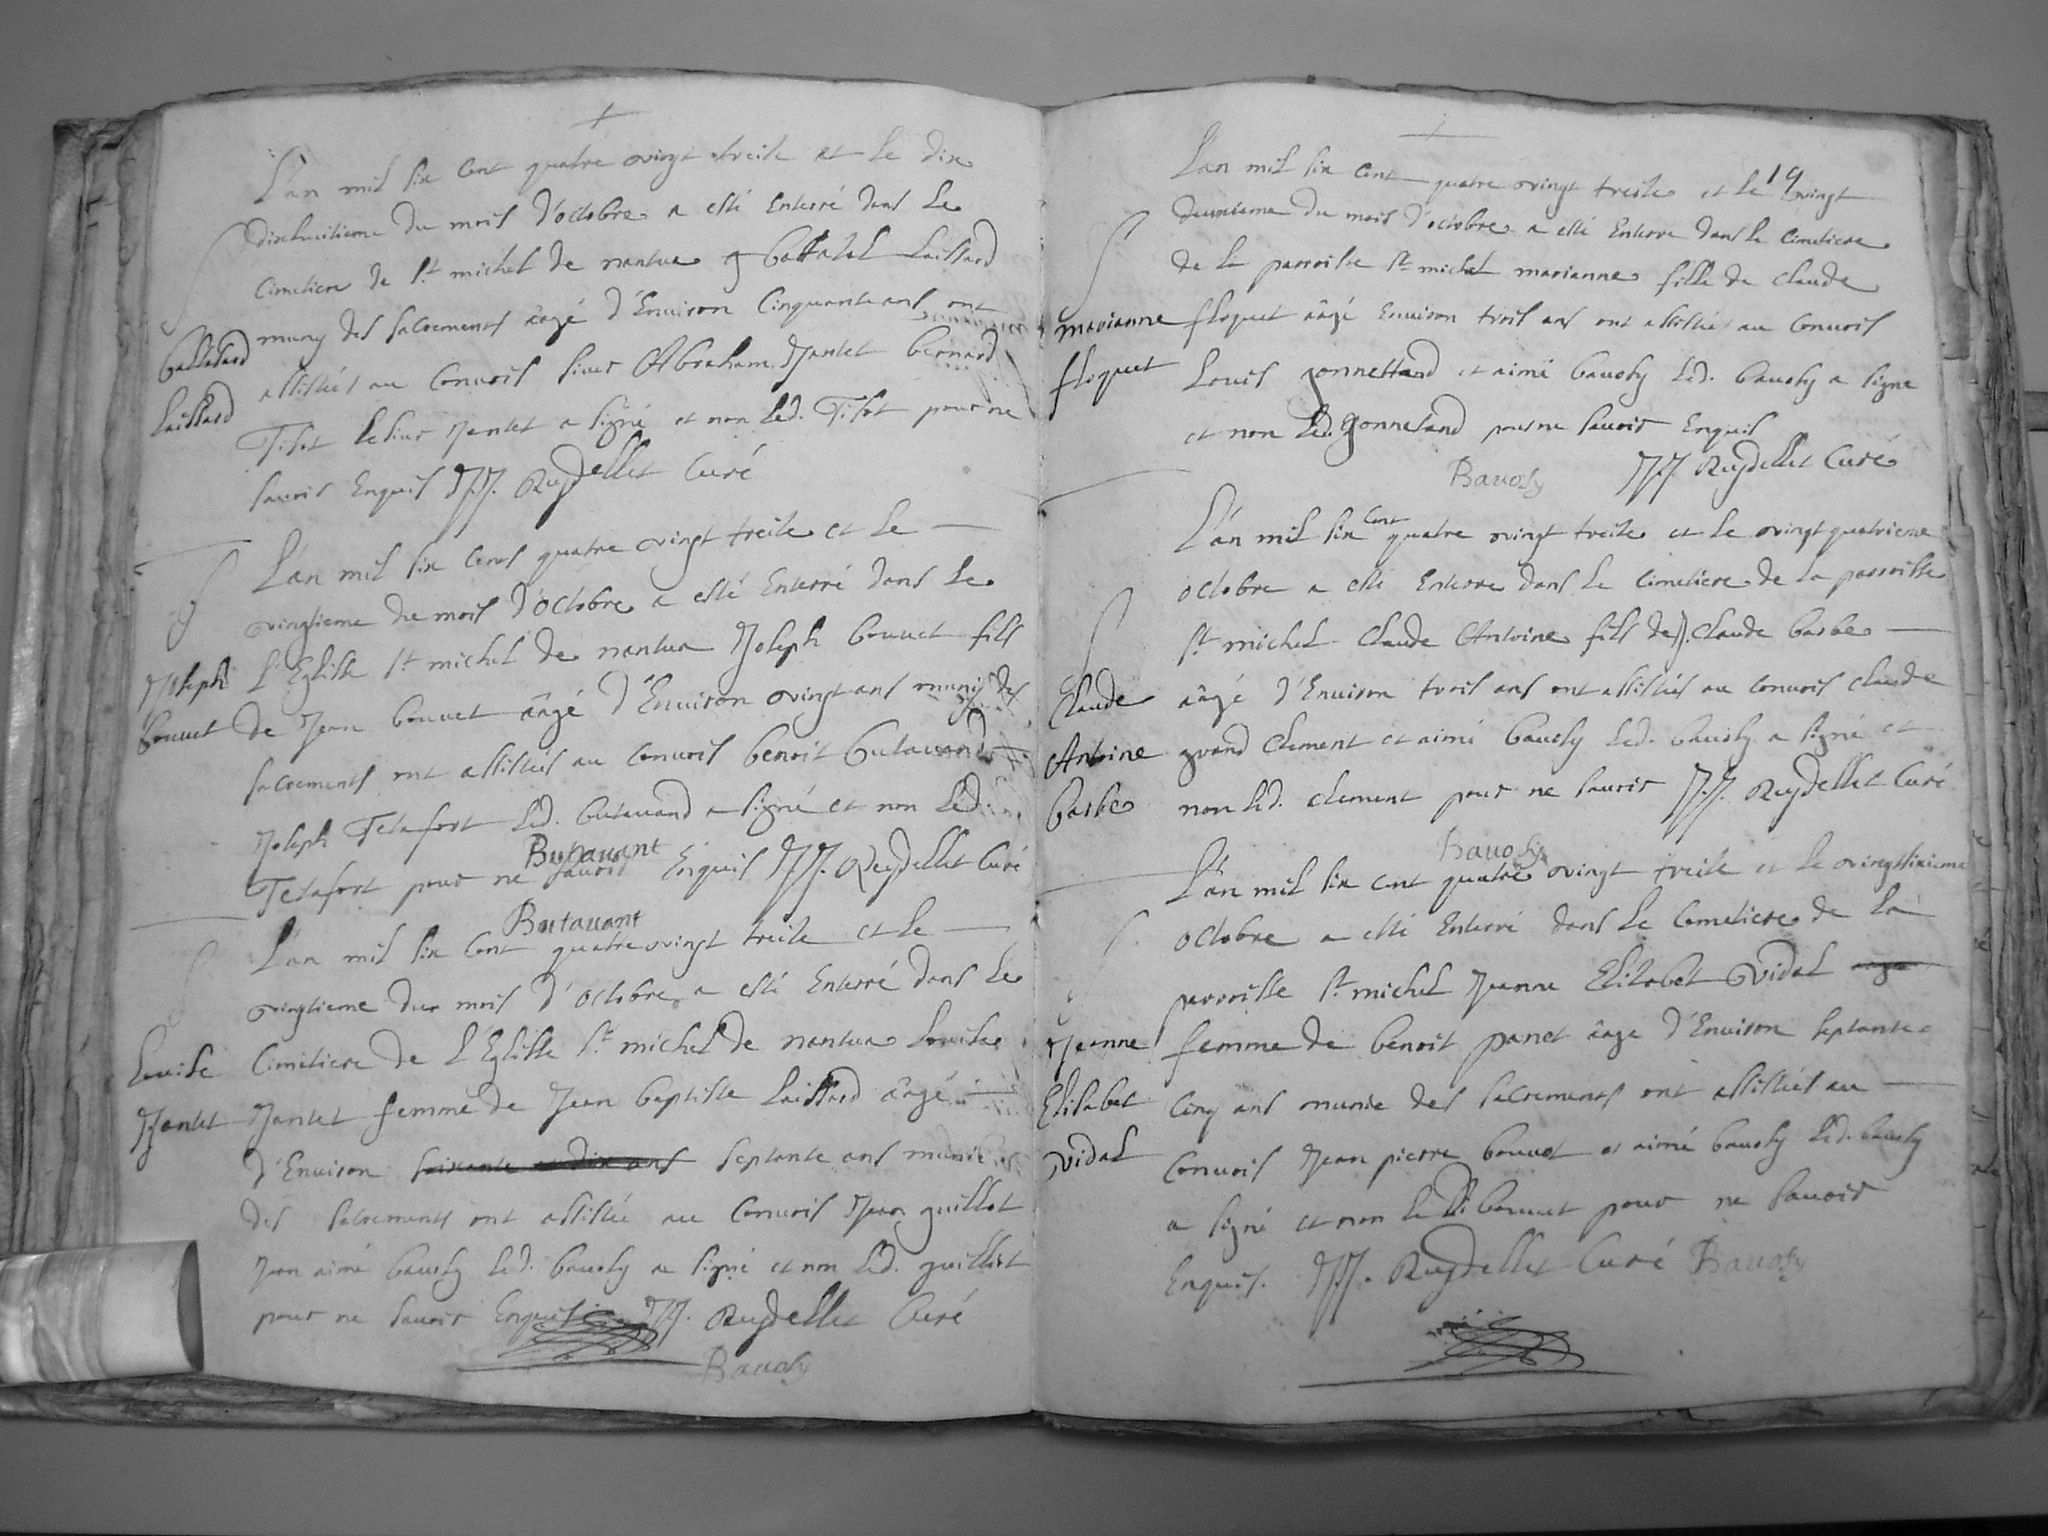 L'an mil six cent quatre vingt treise et le dix
dixhuitieme du mois d'octobre a esté Enterré dans le
Cimetiere de st michel de nantua Baltasard Laissard
muny des sacrements âagé d'Environ Cinquante ans ont
Baltasard
assistés au Convois sieur Abraham Jantet bernard
Laissard
Tisot le sieur Jantet a signé et non led. Tisot pour ne
sauoir Enquis JJ. Reydellet Curé
L'an mil six cens quatre vingt treise et le
vingtieme du mois d'octobre a esté Enterré dans le
L'Eglisse st michel de nantua Joseph bouuet fils
Joseph
de Jean bouuet âagé d'Environ vingt ans munis des
bouuet
sacrements ont assistés au Convois benoit butauand
Joseph Telafort led. butauand a signé et non led.
Telafort pour ne sauoir Enquis JJ. Reydellet Curé
Butauant
Butauant
L'an mil six cent quatre vingt treise et le
vingtieme du mois d'octobre a esté Enterré dans le
Louise Cimetiere de L'Eglisse st michel de nantua Louise
Jantet Jantet femme de Jean baptiste Laissard âagé
d'Environ soixante et dix ans septante ans munie
des sacrements ont assistée au Convois Jean guillot
Jean aimé bauosy led. bauosy a signé et non led. guillot
pour ne sauoir Enquis JJ. Reydellet Curé
Bauosy
19
L'an mil six cent quatre vingt treise et le vingt
deuxieme du mois d'octobre a esté Enterre dans le Cimetiere
de la parroisse st michel marianne fille de Claude
marianne floquet âagé Environ trois ans ont assistés au Convois
floquet Louis gonnettand et aimé bauosy led. bauosy a signe
et non led. gonnetand pour ne sauoir Enquis
Bauosy JJ. Reydellet Curé
L'an mil six cent quatre vingt treise et le vingt quatrieme
octobre a esté Enterre dans le Cimetiere de la parroisse
st michel Claude Antoine fils de Claude barbe
Claude âagé d'Environ trois ans ont assistés au Convois Claude
Antoine grand Clement et aimé bauosy led. bauosy a signé et
barbe non led. Clement pour ne sauoir JJ. Reydellet Curé
Bauosy
L'an mil six cent quatre vingt treise et le vingtsixieme
octobre a esté Enterré dans le Cemetiere de la
parroisse st michel Jeanne Elisabet Vidal
Jeanne femme de benoit panet âage d'Environ septante
Elisabet Cinq ans munie des sacrements ont assistés au
Vidal Convois Jean pierre bouuet et aimé bauosy led. bauosy
a signé et non le bouuet pour ne sauoir
Enquis. JJ. Reydellet Curé Bauosy